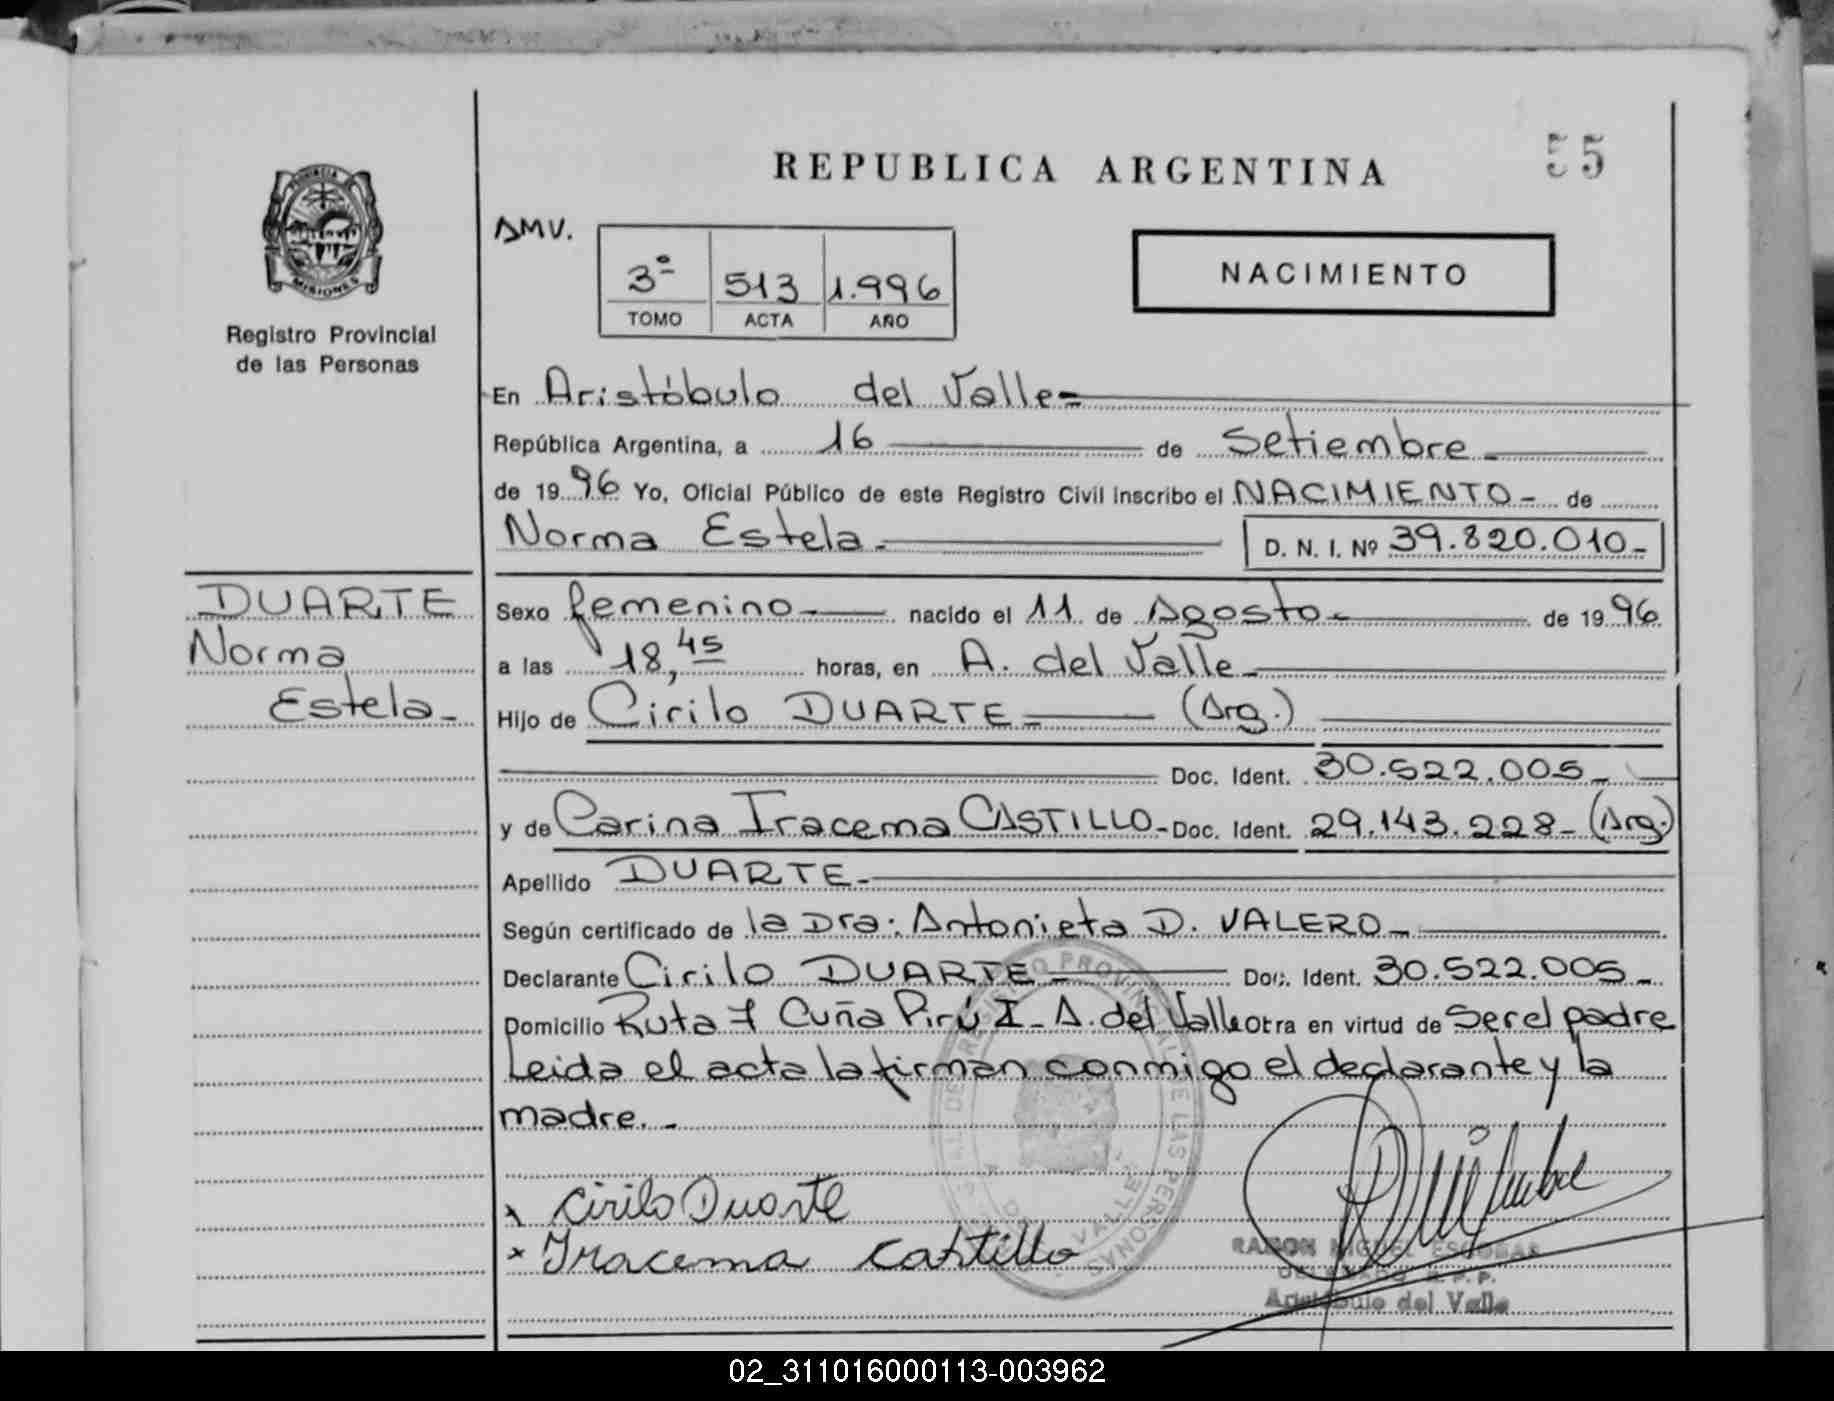 REPUBLICA ARGENTINA
55
PROVINCIA DE
MISIONES
Registro Provincial
de las Personas
AMV.
3º 513 1.996
TOMO ACTA AÑO
NACIMIENTO
En Aristóbulo del Valle=
República Argentina, a 16 de Setiembre
de 1996 Yo, Oficial Público de este Registro Civil inscribo el NACIMIENTO- de
Norma Estela- D. N. I. Nº 39.820.010-
DUARTE
Norma
Estela-
Sexo femenino- nacido el 11 de Agosto- de 1996
a las 18,45 horas, en A. del Valle-
Hijo de Cirilo DUARTE= (Arg.)
Doc. Ident. 30.522.005-
y de Carina Iracema CASTILLO- Doc. Ident. 29.143.228- (Arg.)
Apellido DUARTE-
Según certificado de la Dra: Antonieta D. VALERO-
Declarante Cirilo DUARTE- Doc. Ident. 30.522.005-
Domicilio Ruta 7 Cuña Pirú I- A. del Valle Obra en virtud de Ser el padre
Leida el acta la firman conmigo el declarante y la
madre.-
x Cirilo Duarte
x Iracema Castillo
REGISTRO PROVINCIAL DE LAS PERSONAS
VALLE
RAMON MIGUEL ESCOBAR
DELEGADO R. P. P.
Aristóbulo del Valle
02_311016000113-003962